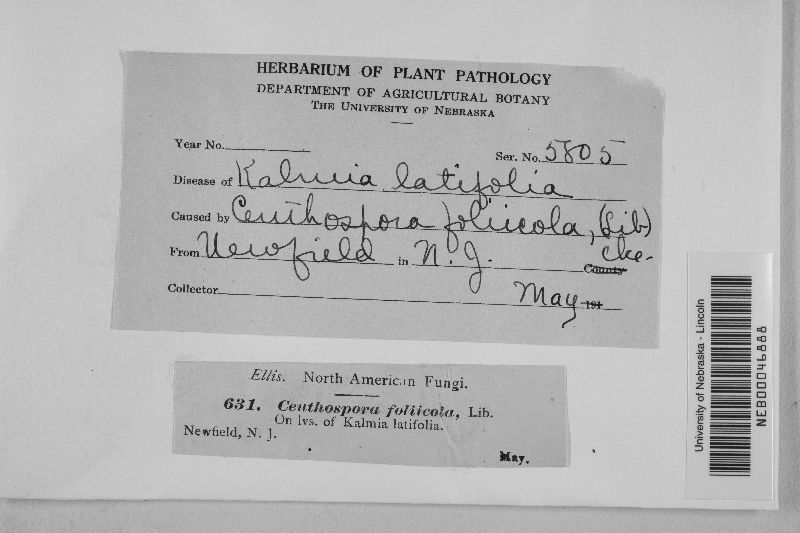 HERBARIUM OF PLANT PATHOLOGY
DEPARTMENT OF AGRICULTURAL BOTANY
THE UNIVERSITY OF NEBRASKA
Year No.
Ser. No. 5805
Disease of Kalmia latifolia
Caused by Ceuthospora foliicola, (Lib) Cke.
From Newfield in N. J. County
Collector May 191
Ellis. North American Fungi.
631. Ceuthospora foliicola, Lib.
On lvs. of Kalmia latifolia.
Newfield, N. J.
May.
University of Nebraska - Lincoln
NEB00046888